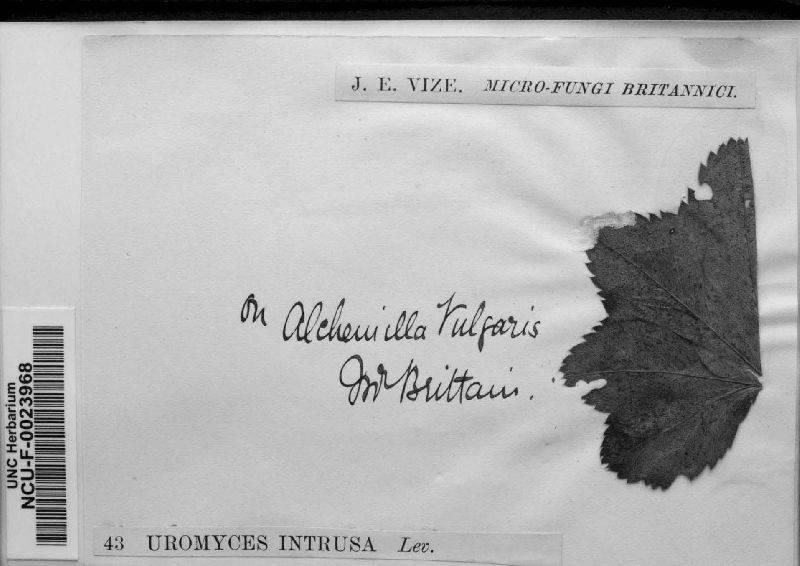 J. E. VIZE. MICRO-FUNGI BRITANNICI.
on Alchemilla Vulgaris
Mr Brittain.
UNC Herbarium
NCU-F-0023968
43 UROMYCES INTRUSA Lev.